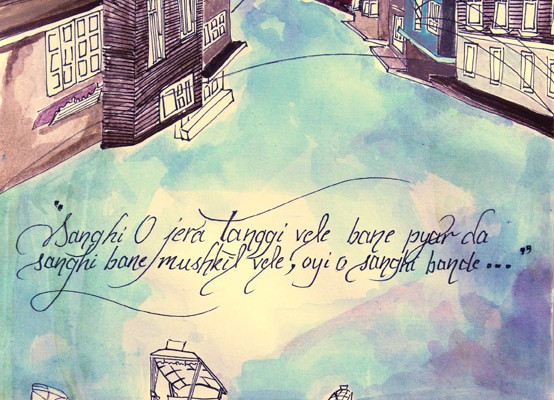 "Sanghi O jera tanggi vele bane pyar da
sanghi bane mushkil vele, oyi o sanghi bande..."